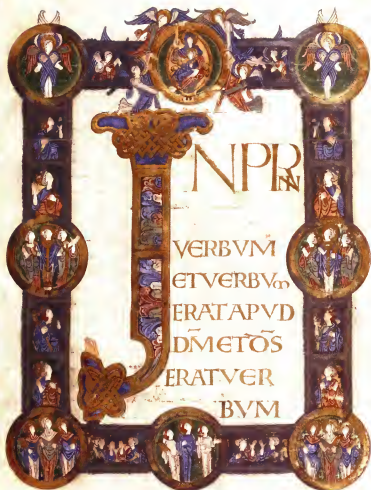 INPRIN
VERBUM̄
ETVERBUM
ERATAPVD
D̄M̄ETD̄S̄
ERATVER
BVM